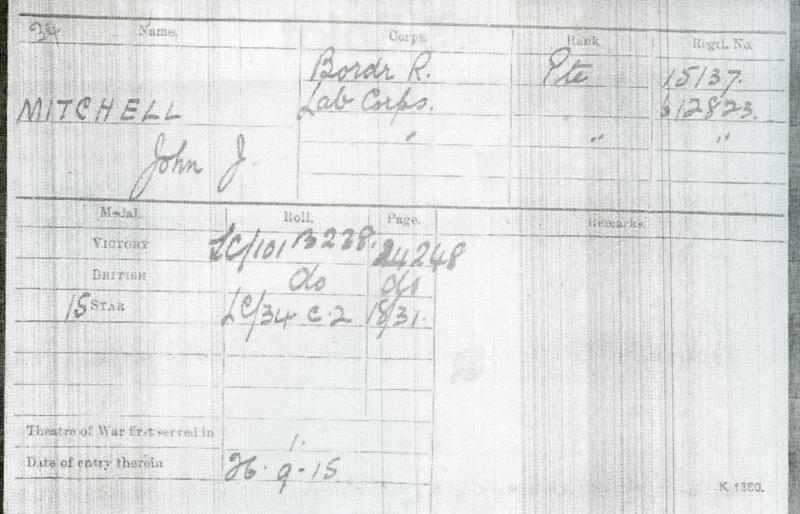 Name. Corps. Rank Regtl. No.
Bordr R. Pte 15137.
MITCHELL Lab Corps. " 612823.
" " "
John J.
Medal. Roll. Page. Remarks.
VICTORY LC/101 B228. 24248
BRITISH do do
15 STAR LC/34 C.2 18/31.
Theatre of War first served in 1.
Date of entry therein 26.9.15
K. 1380.